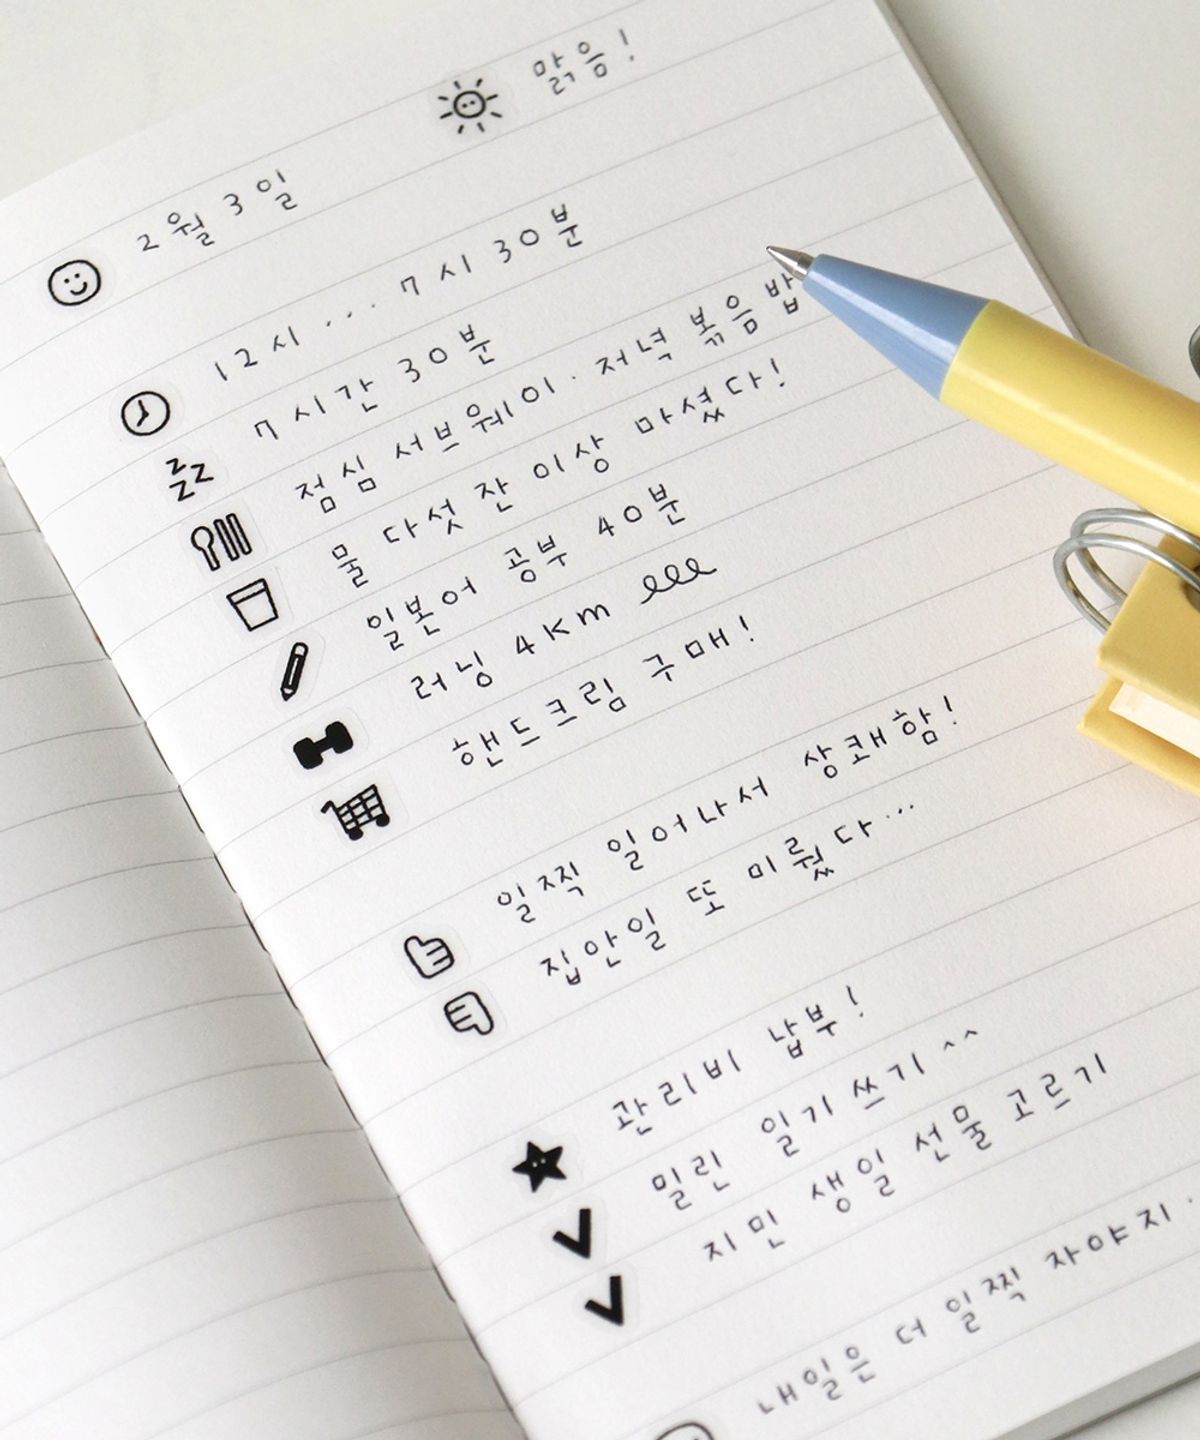 맑음!
2월 3일
12시... 7시 30분
7시간 30분
점심 서브웨이. 저녁 볶음밥
물 다섯 잔 이상 마셨다!
일본어 공부 40분
러닝 4Km
핸드크림 구매!
일찍 일어나서 상쾌함!
집안일 또 미뤘다...
관리비 납부!
밀린 일기 쓰기 ^^
지민 생일 선물 고르기
내일은 더 일찍 자야지.